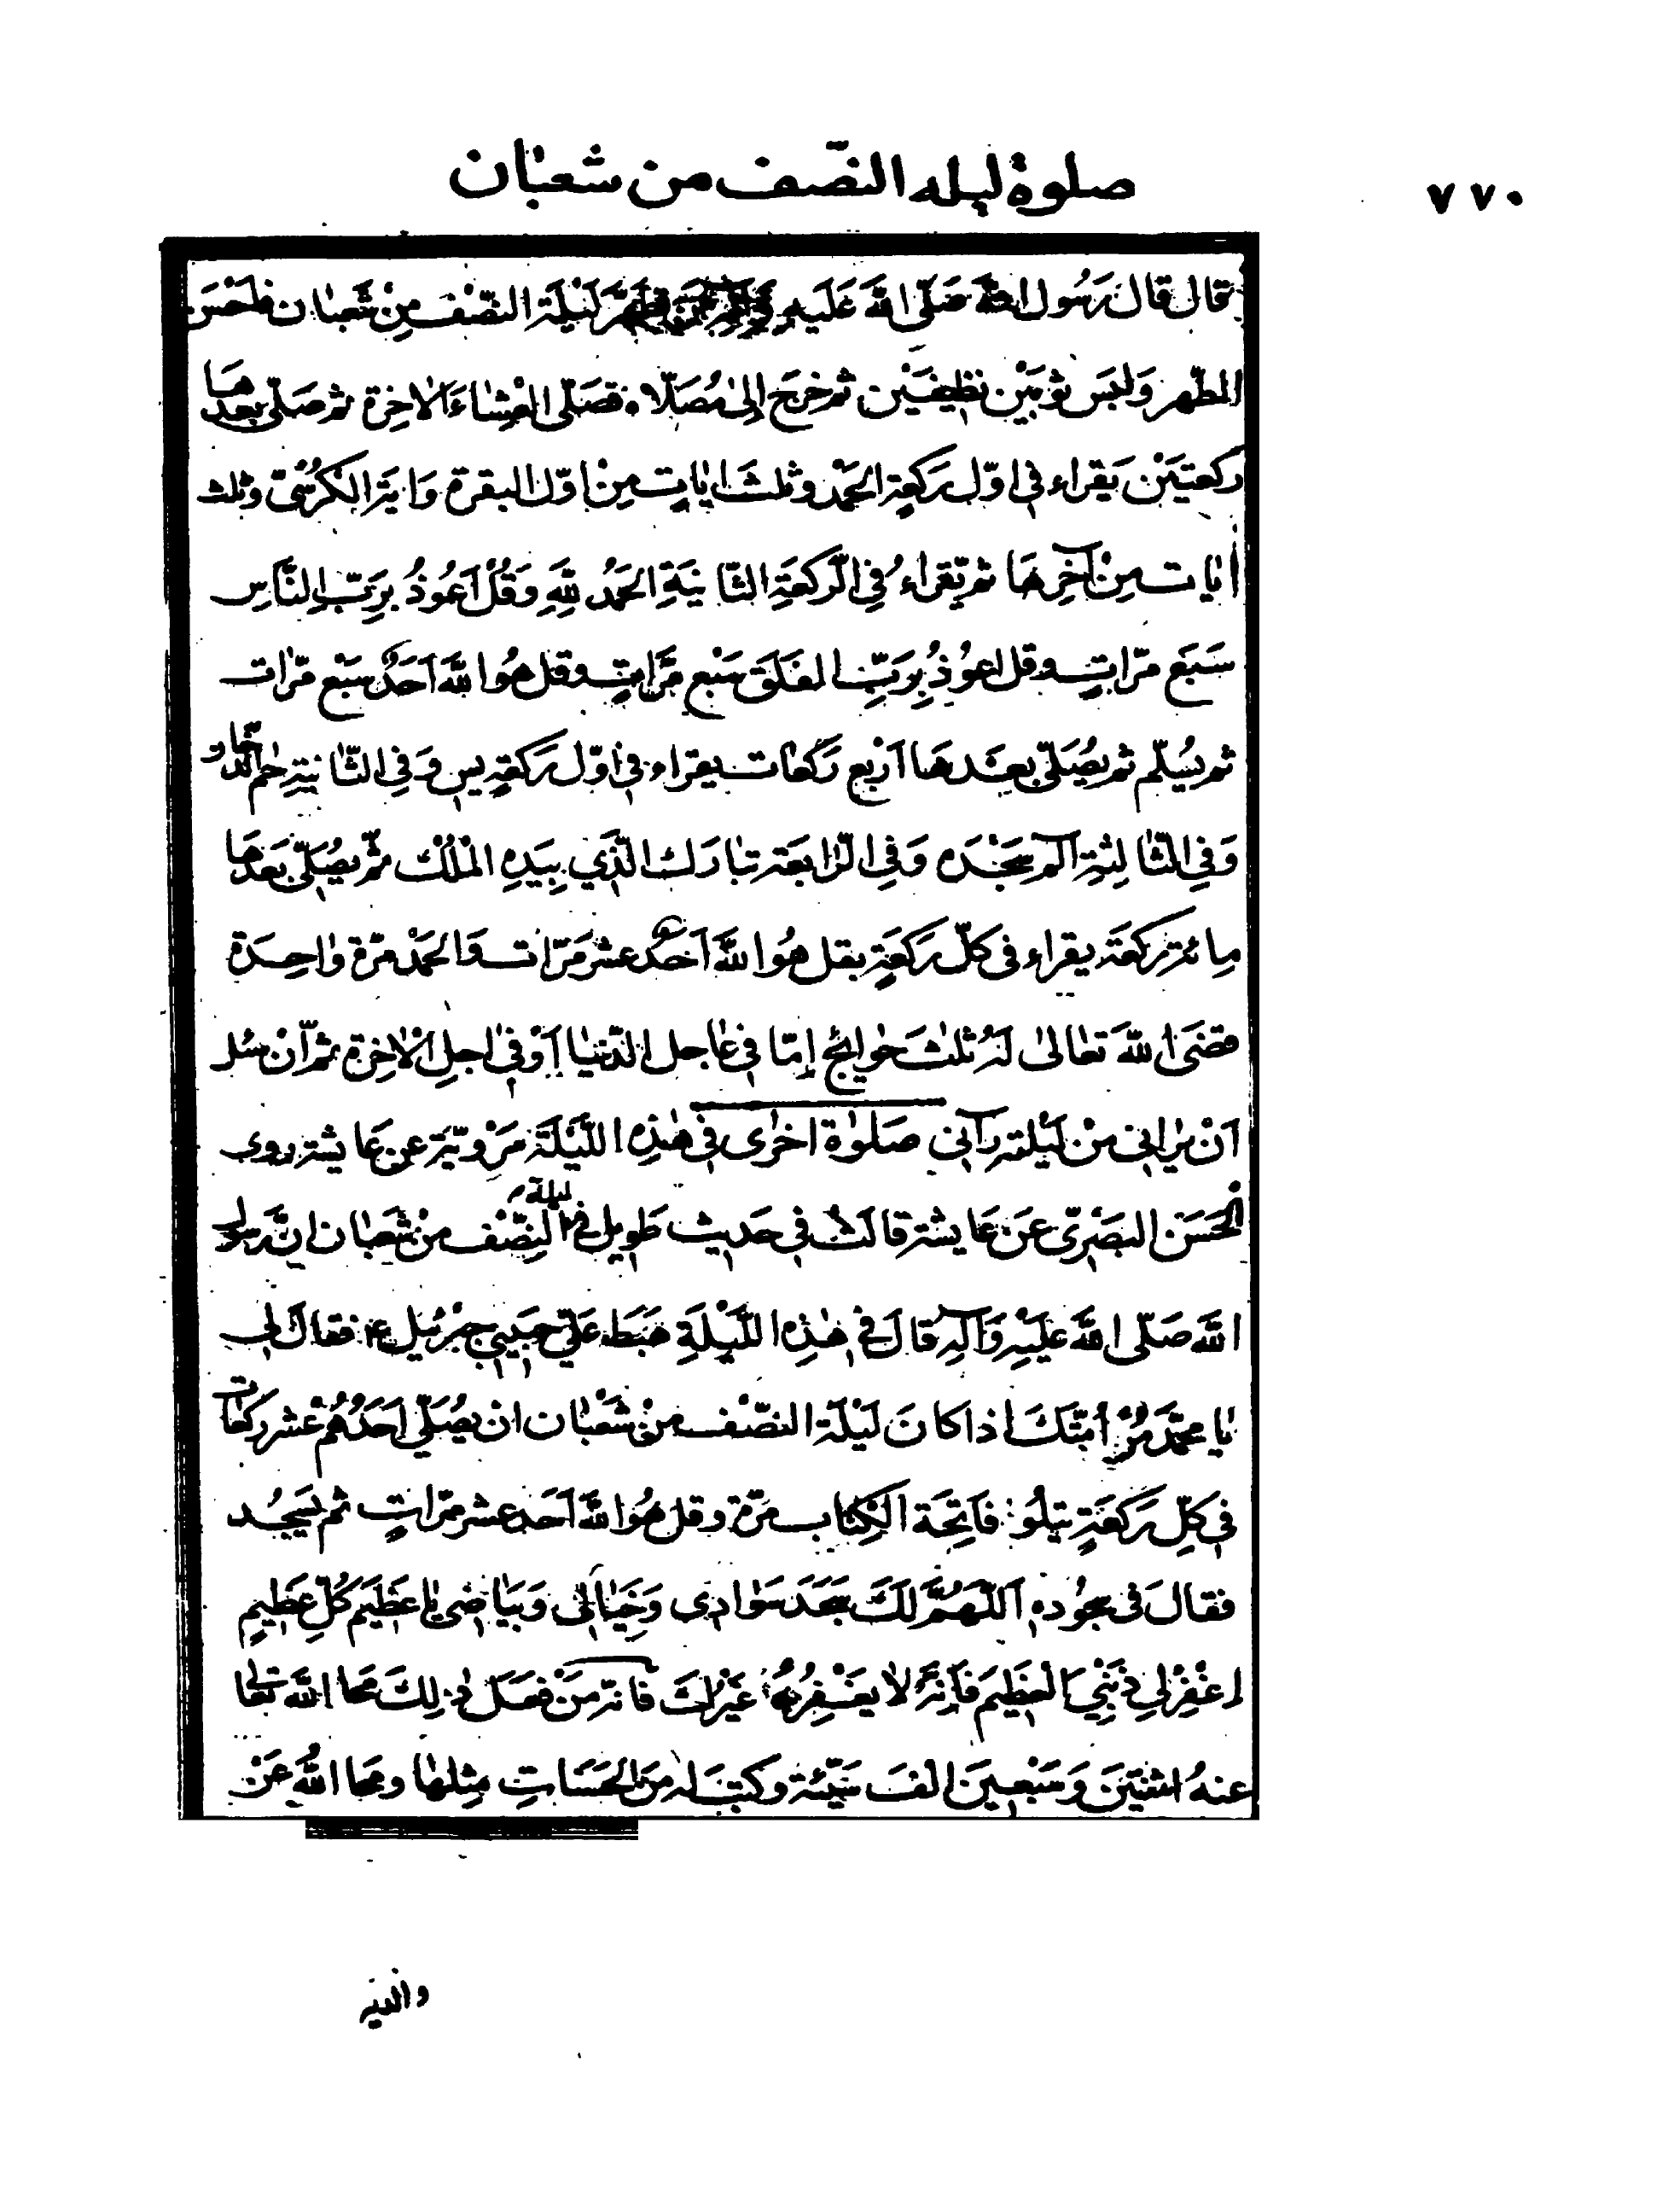 صلوة ليله النصّف من شعبٰان
٧٧٠
قال قال رَسُول اللهِ صَلّى اللهَ عَلَيهِ وَآلِهِ مَنْ تطهّرَ لَيْلَةَ النصّف مِنْ شَعبٰان فاحْسَنَ
المطّهر وَلبَس ثوبَيْن نظيفَيْن ثم خرَج اِلىٰ مُصَلّاه فصَلّى العِشٰاءَ الاٰخِرة ثم صَلّى بعدهٰا
ركعتيَن يَقراء فى اوّل ركعة الحَمْد وثلٰث اٰيٰاتٍ مِنْ اوّل البقرة وَاٰية الكرُسْىّ وثلٰث
اٰيٰات مِنْ آخِرِهٰا ثم يَقراءُ فِى الرّكعَةِ الثّانيَةِ الحَمْدُ لِلّهِ وَقُلْ اَعُوذُ بِرَبّ النّٰاسِ
سَبَع مرّاتٍ وقل اعُوذُ بِرَبِّ الفَلَق سَبْع مَرّاتٍ وقل هُوَ اللّهُ اَحَدٌ سَبْع مرّٰات
ثم يُسَلّم ثم يُصَلّى بعَدهَا اَرْبع رَكعٰات يقراء فى اوّل رَكعةٍ يس وَفِى الثّانيَةِ حٰم الدّخٰان
وَفِى الثّالِثةِ آلم سَجْدَه وَفِى الرّابعَة تبٰارَك الّذي بِيَدِهِ الْمُلْك ثمّ يصُلّى بَعدَهٰا
مِائة ركعَة يقراء فى كلّ رَكعَةٍ بقل هُوَ اللّهُ اَحَدٌ عشر مَرّات وَالحَمْد مرّة وٰاحِدَة
قضَى اللّهَ تعٰالىٰ لَهُ ثلٰث حَوٰائج اِمّا فى عٰاجل الدّنيٰا اَوْ فى اٰجلِ الْاٰخِرة ثم اَنْ سئل
اَنْ يرٰانى مِنْ لَيْلته رآنى صَلوٰة اخرٰى فى هٰذِهِ اللَّيْلَة مَرْويّة عن عٰايشة روى
الحَسَن البَصْرىّ عَنْ عٰايشة قالت فى حَديث طَويل فى ليلة النِصّْف مِنْ شَعبٰان انّ رَسُول
اللّهَ صَلّى اللّهَ عَلَيْهِ وَآلِهِ قالَ فى هٰذِهِ اللَّيْلَةِ هَبَطَ عَلَىّ حَبيبى جبْرئيل ع فقالَ لى
يٰا محمّد مُرْ اُمّتَكَ اذا كانَ لَيْلَة النصّف مِنْ شَعْبٰان انْ يصُلّى اَحَدُهُمْ عَشر ركعٰات
فى كلِّ رَكعَةٍ يتلُو فٰاتِحَة الْكِتٰاب مَرّة وقل هُوَ اللّهُ اَحَد عشر مَرّاتٍ ثم يَسْجُد
فقالَ فى سجُوده اَللّهُمَّ لَكَ سَجَدَ سَوٰادى وَخَيٰالى وَبَيٰاضى يٰا عَظيم كُلِّ عَظيمٍ
اغفِرْ لِى ذَنْبِىَ العَظِيمَ فَاِنَّهُ لا يَغْفِرُهُ غَيْرُكَ فٰانّه مَنْ فعَل ذٰلِكَ مَحَا اللّهَ تعٰالى
عنهُ اثنيَن وَسَبْعينَ الفَ سَيّئة وكتبَ له مِنَ الحَسَنٰاتِ مِثلهٰا ومحا اللّهُ عَنْ
والديه